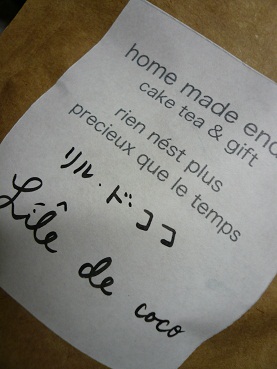 home made end
cake tea & gift
rien nést plus
precieux que le temps
リル・ド ココ
Lîle de coco